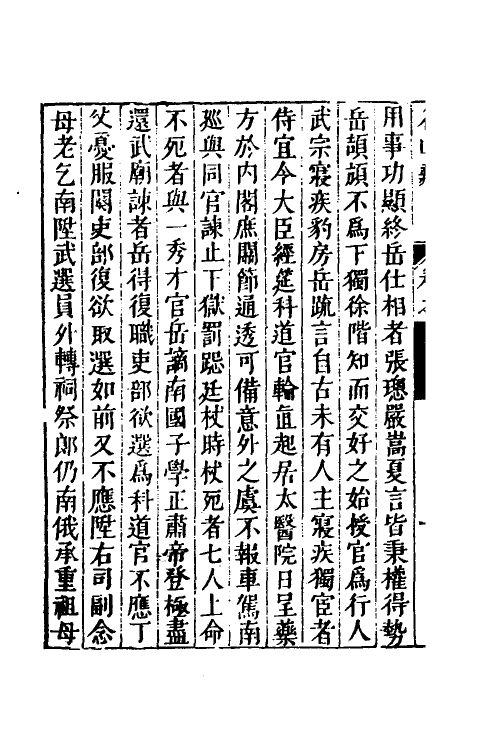 用事功顯終岳仕相者張璁嚴嵩夏言皆秉權得勢
岳頡頏不爲下獨徐階知而交好之始授官爲行人
武宗寢疾豹房岳疏言自古未有人主寢疾獨宦者
侍宜令大臣經筵科道官輪直起居太醫院日呈藥
方於內閣庶關節通透可備意外之虞不報車駕南
廵與同官諫止下獄罰跽廷杖時杖死者七人上命
不死者與一秀才官岳謫南國子學正肅帝登極盡
還武廟諫者岳得復職吏部欲選爲科道官不應丁
父憂服闋吏部復欲取選如前又不應陞右司副念
母老乞南陞武選員外轉祠祭郎仍南俄承重祖母